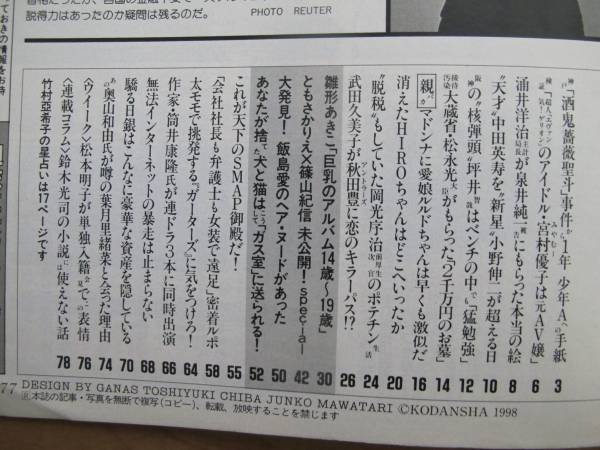 説得力はあったのか疑問は残るのだ。 PHOTO REUTER
ておきの情報を
お待
神戸「酒鬼薔薇聖斗」事件から1年 少年Aへの手紙 3
「超人気!エヴァンゲリオン」のアイドル・宮村優子は元AV嬢 6
涌井洋治主計局長が泉井純一被告にもらった本当の絵 8
“天才”中田英寿を“新星”小野伸二が超える日 10
阪神の“核弾頭”坪井智哉はベンチの中で「猛勉強」 12
接待汚染大蔵省・松永光大臣がもらった「2千万円のお墓」 14
親バカマドンナに愛娘ルルドちゃんは早くも激似だ 16
消えたHIROちゃんはどこへいったか 20
“脱税”もしていた岡光序治前厚生次官のポテチン生活 24
武田久美子が秋田豊に恋のキラーパス!? 26
雛形あきこ「巨乳のアルバム14歳〜19歳」 30
ともさかりえ×篠山紀信 未公開!special 42
大発見! 飯島愛のヘア・ヌードがあった 50
あなたが捨てた犬と猫はこうして「ガス室」に送られる! 52
これが天下のSMAP御殿だ! 55
「会社社長も弁護士も女装で遠足」密着ルポ 58
太モモで挑発する「『ガーターズ』に気をつけろ! 64
作家・筒井康隆氏が連ドラ3本に同時出演 66
無法インターネットの暴走は止まらない 68
驕る日銀はこんなに豪華な資産を隠している 70
あの奥山和由氏が噂の葉月里緒菜と会った理由 74
〈ウイーク〉松本明子が単独入籍会見で見せた表情 76
〈連載コラム〉鈴木光司の小説には使えない話 78
竹村亞希子の星占いは17ページです
77
DESIGN BY GANAS TOSHIYUKI CHIBA JUNKO MAWATARI ©KODANSHA 1998
Ⓡ本誌の記事・写真を無断で複写(コピー)、転載、放映することを禁じます